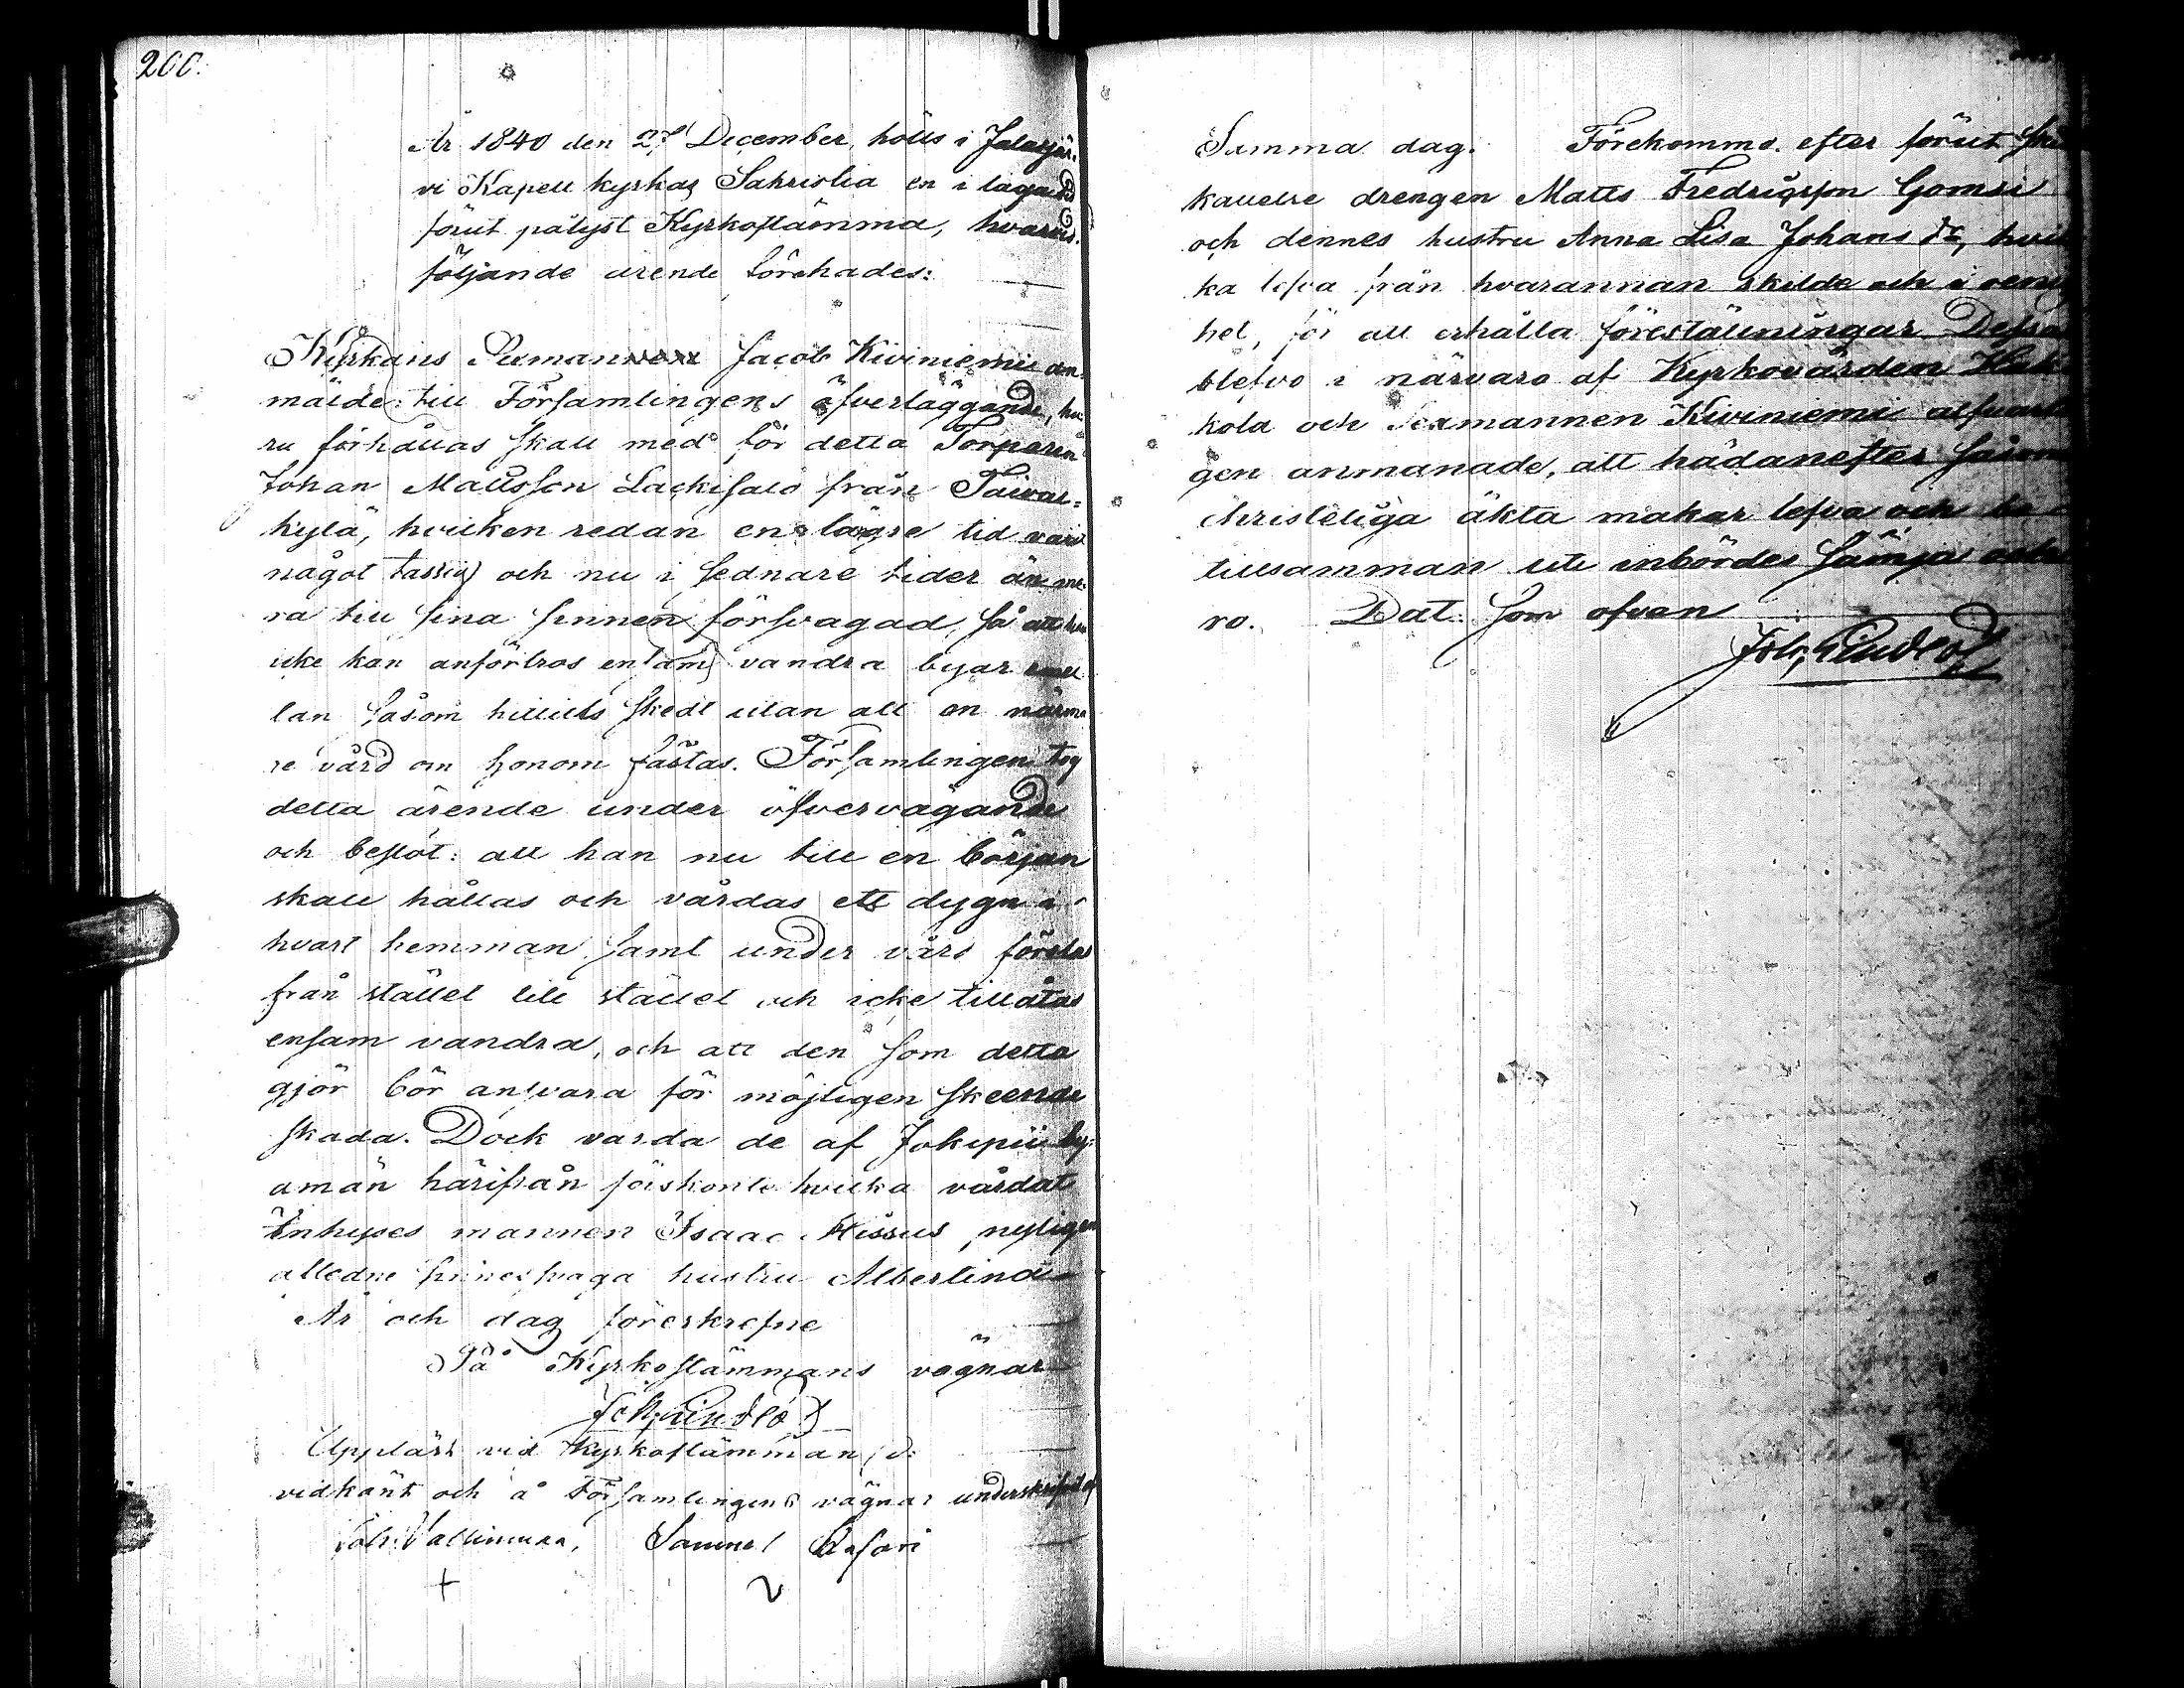 200.
År 1840 den 27 December, hölls i Jalasjär-
vi Kapell kyrkas Sakristia en i laga tid
förut pålyst Kyrkostämma, hvarvid
följande ärende förehades:
Kyrkans Sexman Jacob Kiviniemi an-
mälde till Församlingens öfverläggande, hu-
ru förhållas skall med för detta Torparen
Johan Mattsson Lackisalo från Taival-
kylä, hvilken redan en lägre tid varit
något tassig och nu i sednare tider än me-
ra till sina sinnen försvagad, så att han
icke kan anförtros ensam vandra byar emel-
lan såsom hittills skedt utan att en närma-
re vård om honom fästas. Församlingen tog
detta ärende under öfvervägande
och beslöt: att han nu till en början
skall hållas och vårdas ett dygn i
hvart hemman samt under vård föreslas
från stället till stället och icke tillåtas
ensam vandra, och att den som detta
gjör bör ansvara för möjligen skeende
skada. Dock varda de af Jokipii by-
amän härifrån förskonte hvilka vårdat
Inhyses mannen Isaac Hissus, nyligen
aflednе sinnessvaga hustru Albertina
År och dag föreskrefne
På Kyrkostämmans vägnar
Joh: Lindlöf
Uppläst vid Kyrkostämman,
vidkänt och å Församlingens vägnar underskrifvit af
Joh: Samuel
+
Samma dag. Förekommo efter förut ske
kallelse drengen Matts Fredricsson Gomsi
och dennes hustru Anna Lisa Johans dr, hvil
ka lefva från hvarannan skilde och i oenig
het, för att erhålla föreställningar. Dessa
blefvo i närvaro af Kyrkovärden
kola och Sexmannen Kiviniemi alfvarli
gen anmanade, att hädanefter såsom
christeliga äkta makar lefva och
tillsamman uti inbördes sämja och
ro. Dat. som ofvan
Joh: Lindlöf